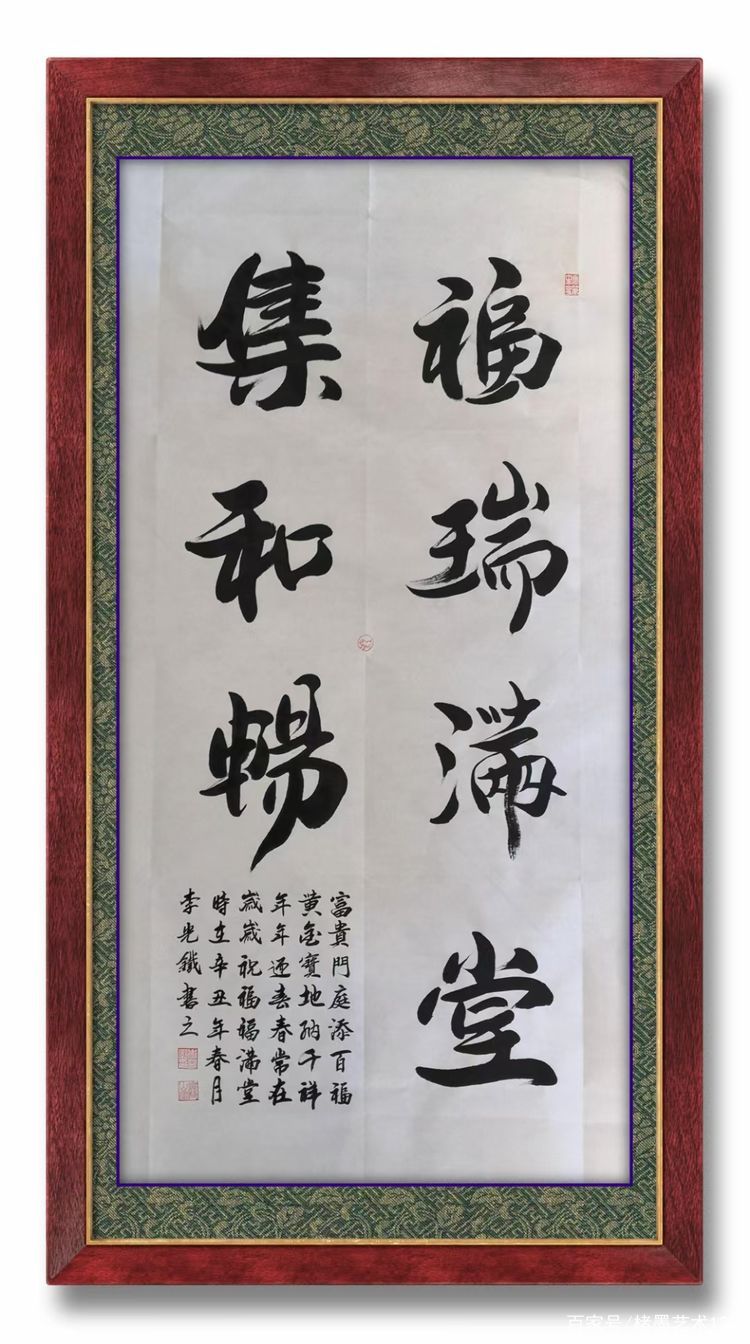 福瑞滿堂
集和暢
富貴門庭添百福
黄金寶地納千祥
年年迎春春常在
歲歲祝福福滿堂
時在辛丑年春月
李光鐵書之